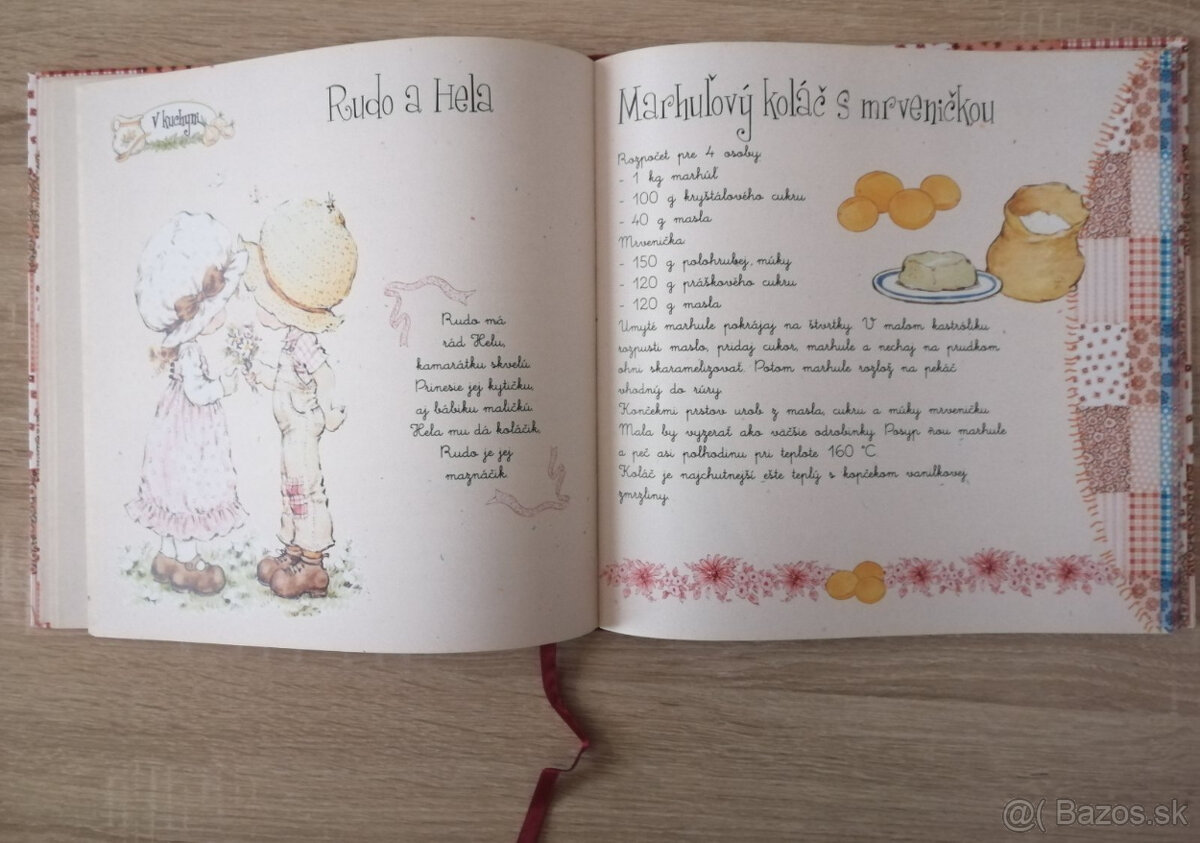 V kuchyni
Rudo a Hela
Rudo má
rád Helu,
kamarátku skvelú.
Prinesie jej kytičku,
aj bábiku maličkú.
Hela mu dá koláčik,
Rudo je jej
maznáčik.
Marhuľový koláč s mrveničkou
Rozpočet pre 4 osoby:
- 1 kg marhúľ
- 100 g kryštálového cukru
- 40 g masla
Mrvenička:
- 150 g polohrubej múky
- 120 g práškového cukru
- 120 g masla
Umyté marhule pokrájaj na štvrtky. V malom kastróliku
rozpusti maslo, pridaj cukor, marhule a nechaj na prudkom
ohni skaramelizovať. Potom marhule rozlož na pekáč
vhodný do rúry.
Končekmi prstov urob z masla, cukru a múky mrveničku.
Mala by vyzerať ako väčšie odrobinky. Posyp ňou marhule
a peč asi polhodinu pri teplote 160 °C.
Koláč je najchutnejší ešte teplý s kopčekom vanilkovej
zmrzliny.
@( Bazos.sk